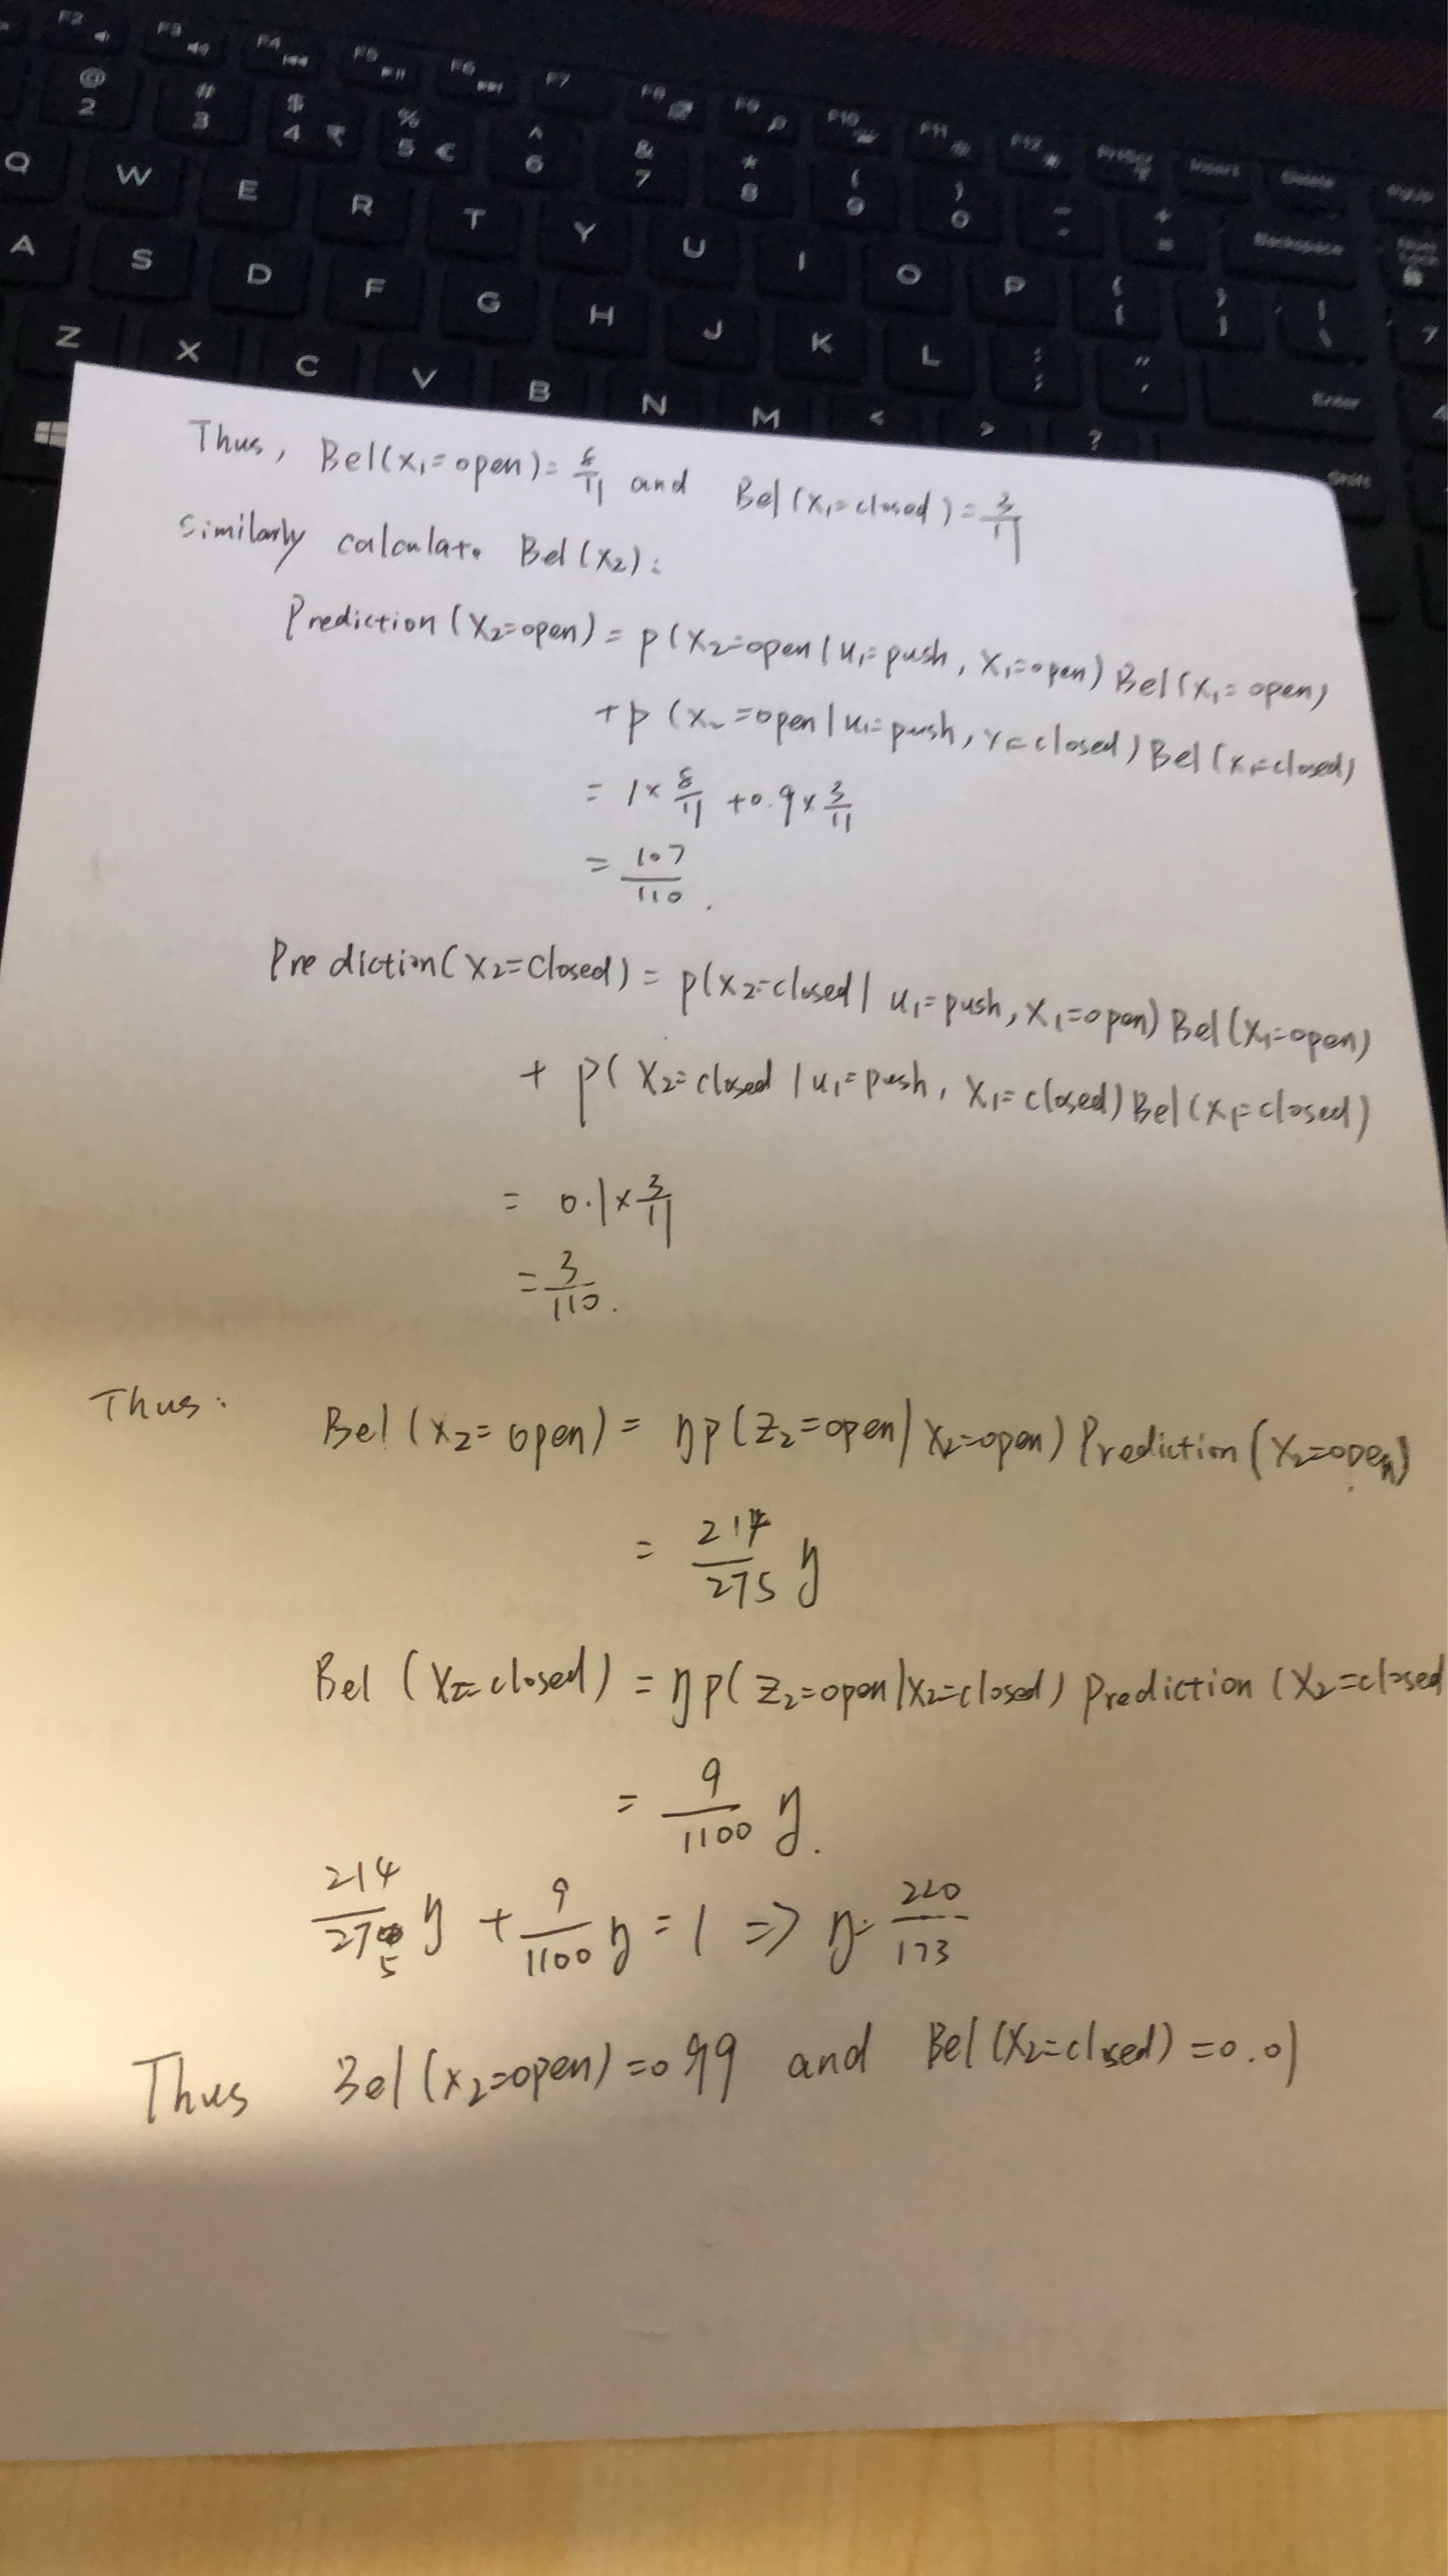 F2 F3 F4 F5 F6 F7 F8 F9 F10 F11 F12 PrtScr Insert Delete PgUp
@ # $ % ^ & * ( ) - +
2 3 4 ₹ 5 € 6 7 8 9 0 = Backspace Num Lock
Q W E R T Y U I O P { } | 7
[ ] \
A S D F G H J K L : " Enter 4
; '
Z X C V B N M < > ? Shift
Thus, Bel(x₁=open)=8/11 and Bel(x₁=closed)=3/11
similarly calculate Bel(x₂):
Prediction(x₂=open) = p(x₂=open|u₁=push, x₁=open) Bel(x₁=open)
+p (x₂=open|u₁=push, x₁=closed) Bel(x₁=closed)
= 1×8/11 +0.9×3/11
= 107/110.
Prediction(x₂=closed) = p(x₂=closed| u₁=push, x₁=open) Bel(x₁=open)
+ p( x₂=closed |u₁=push, x₁=closed) Bel(x₁=closed)
= 0.1×3/11
= 3/110.
Thus:
Bel(x₂=open) = ηp(z₂=open|x₂=open) Prediction(x₂=open)
= 214/275 η
Bel (x₂=closed) = ηp(z₂=open|x₂=closed) prediction (x₂=closed
= 9/1100 η.
214/275 η + 9/1100 η = 1 => η= 220/173
Thus Bel(x₂=open)=0.99 and Bel(x₂=closed)=0.01